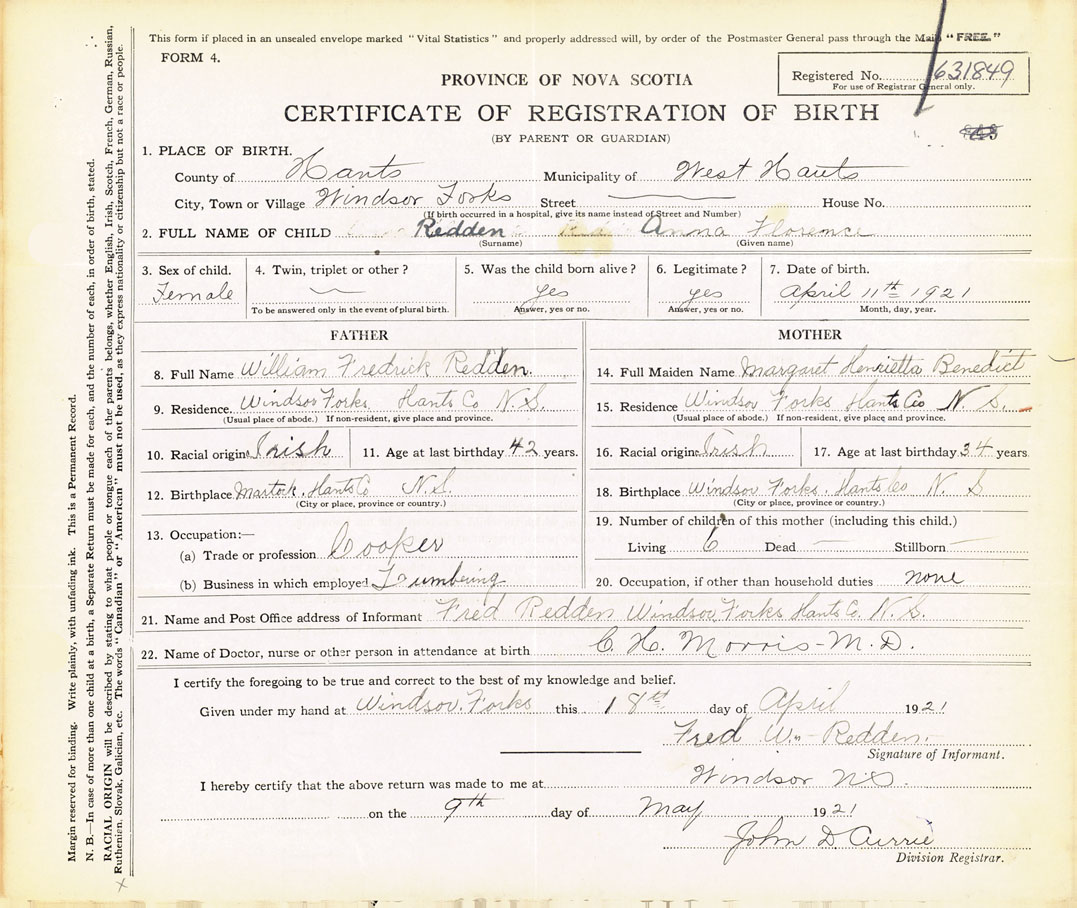 This form if placed in an unsealed envelope marked "Vital Statistics" and properly addressed will, by order of the Postmaster General pass through the Mails "FREE."
FORM 4.
Registered No. 631849
For use of Registrar General only.
PROVINCE OF NOVA SCOTIA
CERTIFICATE OF REGISTRATION OF BIRTH
(BY PARENT OR GUARDIAN)
1. PLACE OF BIRTH.
County of Hants Municipality of West Hants
City, Town or Village Windsor Forks Street House No.
(If birth occurred in a hospital, give its name instead of Street and Number)
2. FULL NAME OF CHILD Redden Anna Florence
(Surname) (Given name)
3. Sex of child. 4. Twin, triplet or other? 5. Was the child born alive? 6. Legitimate? 7. Date of birth.
Female yes yes April 11th 1921
To be answered only in the event of plural birth. Answer, yes or no. Answer, yes or no. Month, day, year.
FATHER
8. Full Name William Fredrick Redden.
9. Residence Windsor Forks Hants Co N.S.
(Usual place of abode.) If non-resident, give place and province.
10. Racial origin Irish 11. Age at last birthday 42 years.
12. Birthplace Martock, Hants Co N.S.
(City or place, province or country.)
13. Occupation:—
(a) Trade or profession Cooper
(b) Business in which employed Lumbering
MOTHER
14. Full Maiden Name Margaret Henrietta Benedict
15. Residence Windsor Forks Hants Co N S.
(Usual place of abode.) If non-resident, give place and province.
16. Racial origin Irish 17. Age at last birthday 34 years
18. Birthplace Windsor Forks. Hants Co N. S
(City or place, province or country.)
19. Number of children of this mother (including this child.)
Living 6 Dead — Stillborn —
20. Occupation, if other than household duties none
21. Name and Post Office address of Informant Fred Redden Windsor Forks Hants Co. N.S.
22. Name of Doctor, nurse or other person in attendance at birth C. H. Morris - M.D.
I certify the foregoing to be true and correct to the best of my knowledge and belief.
Given under my hand at Windsor Forks this 18th day of April 1921
Fred Wm Redden.
Signature of Informant.
I hereby certify that the above return was made to me at Windsor N.S.
on the 9th day of May 1921
John D Currie
Division Registrar.
Margin reserved for binding. Write plainly, with unfading ink. This is a Permanent Record.
N. B.—In case of more than one child at a birth, a Separate Return must be made for each, and the number of each, in order of birth, stated.
RACIAL ORIGIN will be described by stating to what people or tongue each of the parents belongs, whether English, Irish, Scotch, French, German, Russian,
Ruthenian, Slovak, Galician, etc. The words "Canadian" or "American" must not be used, as they express nationality or citizenship but not a race or people.